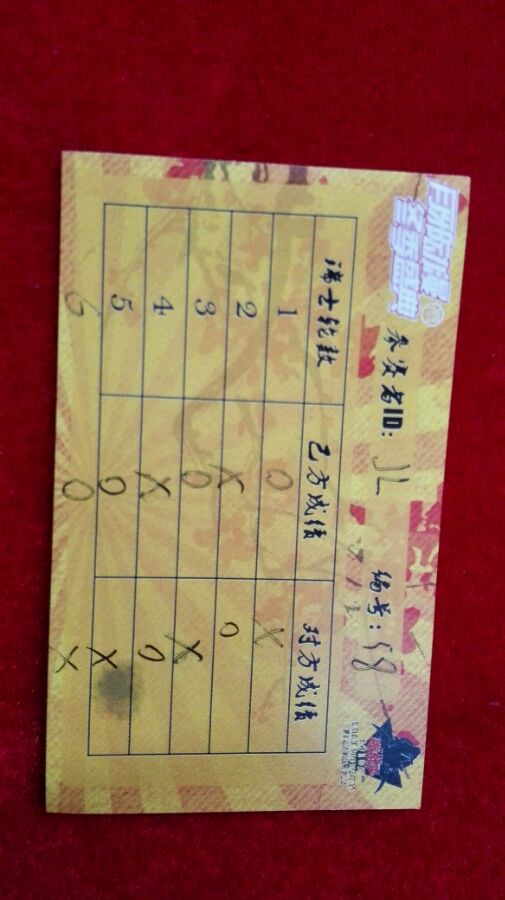 月翔动漫
冬季盛典
参赛者ID: JL 编号: 58
瑞士轮数 己方成绩 对方成绩
1 O X
2 X O
3 O X
4 X O
5 O X
6 O X